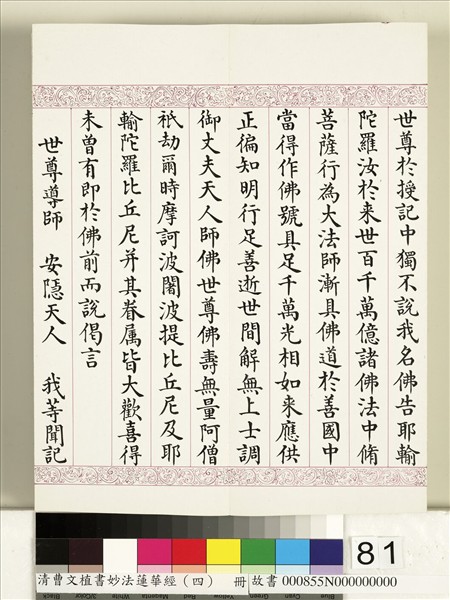 世尊於授記中獨不說我名佛告耶輸
陀羅汝於来世百千萬億諸佛法中脩
菩薩行為大法師漸具佛道於善國中
當得作佛號具足千萬光相如来應供
正徧知明行足善逝世間解無上士調
御丈夫天人師佛世尊佛壽無量阿僧
祇劫爾時摩訶波闍波提比丘尼及耶
輸陀羅比丘尼并其眷属皆大歡喜得
未曾有即於佛前而說偈言
世尊導師 安隱天人 我等聞記
81
清曹文植書妙法蓮華經（四） 冊 故書 000855N000000000